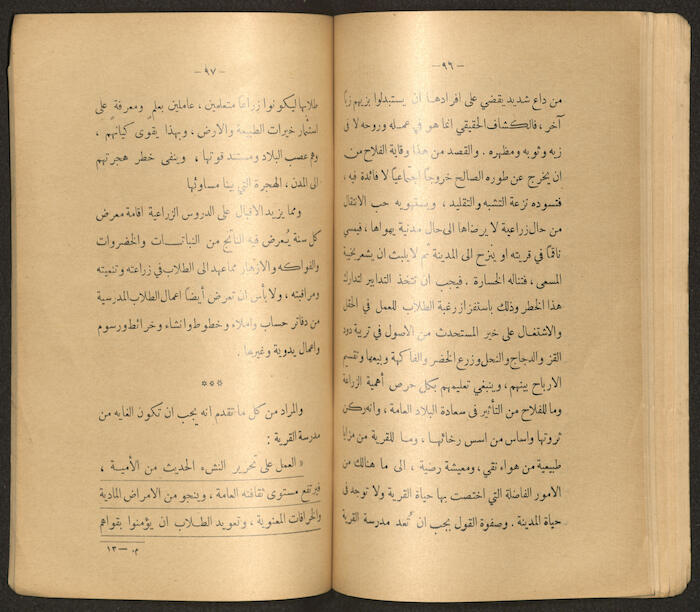 — ٩٦ —
من داع شديد يقضي على افرادها ان يستبدلوا بزيهم زيا
آخر ، فالكشاف الحقيقي انما هو في عمله وروحه لا في
زيه وثوبه ومظهره . والقصد من هذا وقاية الفلاح من
ان يخرج عن طوره الصالح خروجاً اجتماعياً لا فائدة فيه ،
فتسوده نزعة التشبه والتقليد ، ويستهويه حب الانتقال
من حال زراعية لا يرضاها الى حال مدنية يهواها ، فيمسي
ناقماً في قريته او ينزح الى المدينة ثم لا يلبث ان يشعر بخيبة
المسعى ، فتناله الخسارة . فيجب ان تتخذ التدابير لتدارك
هذا الخطر وذلك باستفزاز رغبة الطلاب للعمل في الحقل
والاشتغال على خير المستحدث من الاصول في تربية دود
القز والدجاج والنحل وزرع الخضر والفاكهة وبيعها وتقسيم
الارباح بينهم ، وينبغي تعليمهم بكل حرص أهمية الزراعة
وما للفلاح من التأثير في سعادة البلاد العامة ، وانه ركن
ثروتها واساس من اسس رخائها ، وما للقرية من مزايا
طبيعية من هواء نقي ، ومعيشة رضية ، الى ما هنالك من
الامور الفاضلة التي اختصت بها حياة القرية ولا توجد في
حياة المدينة . وصفوة القول يجب ان تُعد مدرسة القرية
— ٩٧ —
طلابها ليكونوا زراعاً متعلمين ، عاملين بعلمٍ ومعرفةٍ على
استثمار خيرات الطبيعة والارض ، وبهذا يقوى كيانهم ،
وهم عصب البلاد ومستند قوتها ، وينفى خطر هجرتهم
الى المدن ، الهجرة التي بينا مساوئها
ومما يزيد الاقبال على الدروس الزراعية اقامة معرض
كل سنة يُعرض فيه الناتج من النباتات والخضروات
والفواكه والازهار مما عهد الى الطلاب في زراعته وتنميته
ومراقبته ، ولا بأس ان تعرض أيضاً اعمال الطلاب المدرسية
من دفاتر حساب واملاء وخطوط وانشاء وخرائط ورسوم
واعمال يدوية وغيرها .
***
والمراد من كل ما تقدم انه يجب ان تكون الغايه من
مدرسة القرية :
« العمل على تحرير النشء الحديث من الأمية ،
فيرتفع مستوى ثقافته العامة ، وينجو من الامراض المادية
والخرافات المعنوية ، وتعويد الطلاب ان يؤمنوا بقواهم
م. — ١٣